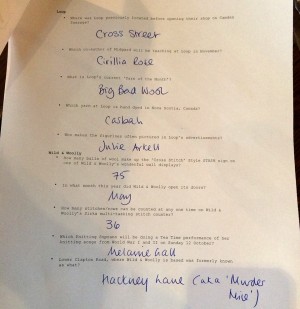 Loop
Where was Loop previously located before opening their shop in Camden
Passage?
Cross Street
Which co-editor of Midgard will be teaching at Loop in November?
Cirillia Rose
What is Loop's current 'Yarn of the Month'?
Big Bad Wool
Which yarn at Loop is hand dyed in Nova Scotia, Canada?
Casbah
Who makes the figurines often pictured in Loop's advertisements?
Julie Arkell
Wild & Woolly
How many balls of wool make up the 'Cross Stitch' Style STASH sign on
one of Wild & Woolly's colorful wall displays?
75
In what month this year did Wild & Woolly open its doors?
May
How many stitches/rows can be counted at any one time on Wild &
Woolly's Sirka multi-tasking stitch counter?
36
Which Knitting Songbird will be doing a Tea Time performance of her
knitting songs from World War I and II on Sunday 12 October?
Melanie Gall
Lower Clapton Road, where Wild & Woolly is based was formerly known
as what?
Hackney Lane (aka 'Murder
Mile')